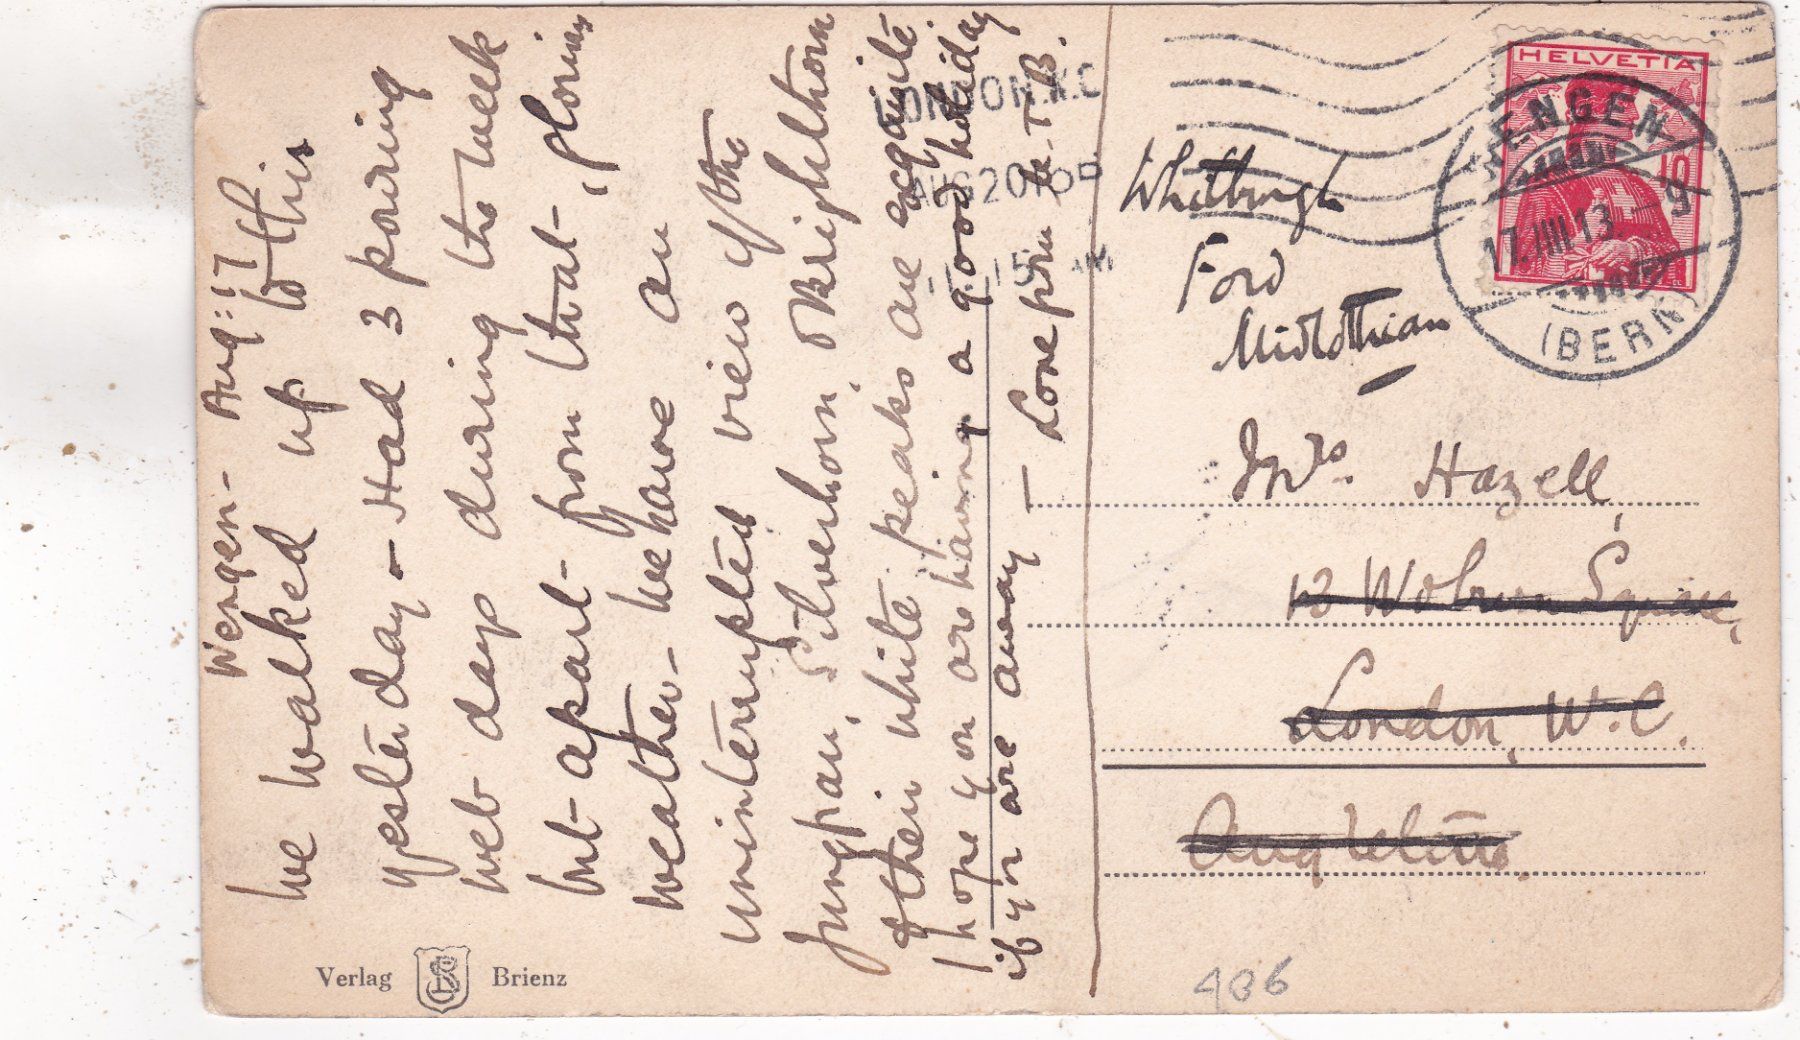 Wengen - Aug: 17
We walked up to this
yesterday - Had 3 pouring
wet days during the week
but apart from that, glorious
weather - We have an
uninterrupted view of the
Jungfrau, Silverhorn, Breighthorn
& their white peaks are exquisite
I hope you are having a good holiday
if you are away - Love from
T B.
HELVETIA
10
WENGEN
17.VIII.13.-9
(BERN)
LONDON.W.C
AUG 20
AM
Whitburgh
Ford
Midlothian
Mrs. Hazell,
13 Woburn Square,
London, W.C.
Angleterre.
Verlag
Brienz
406